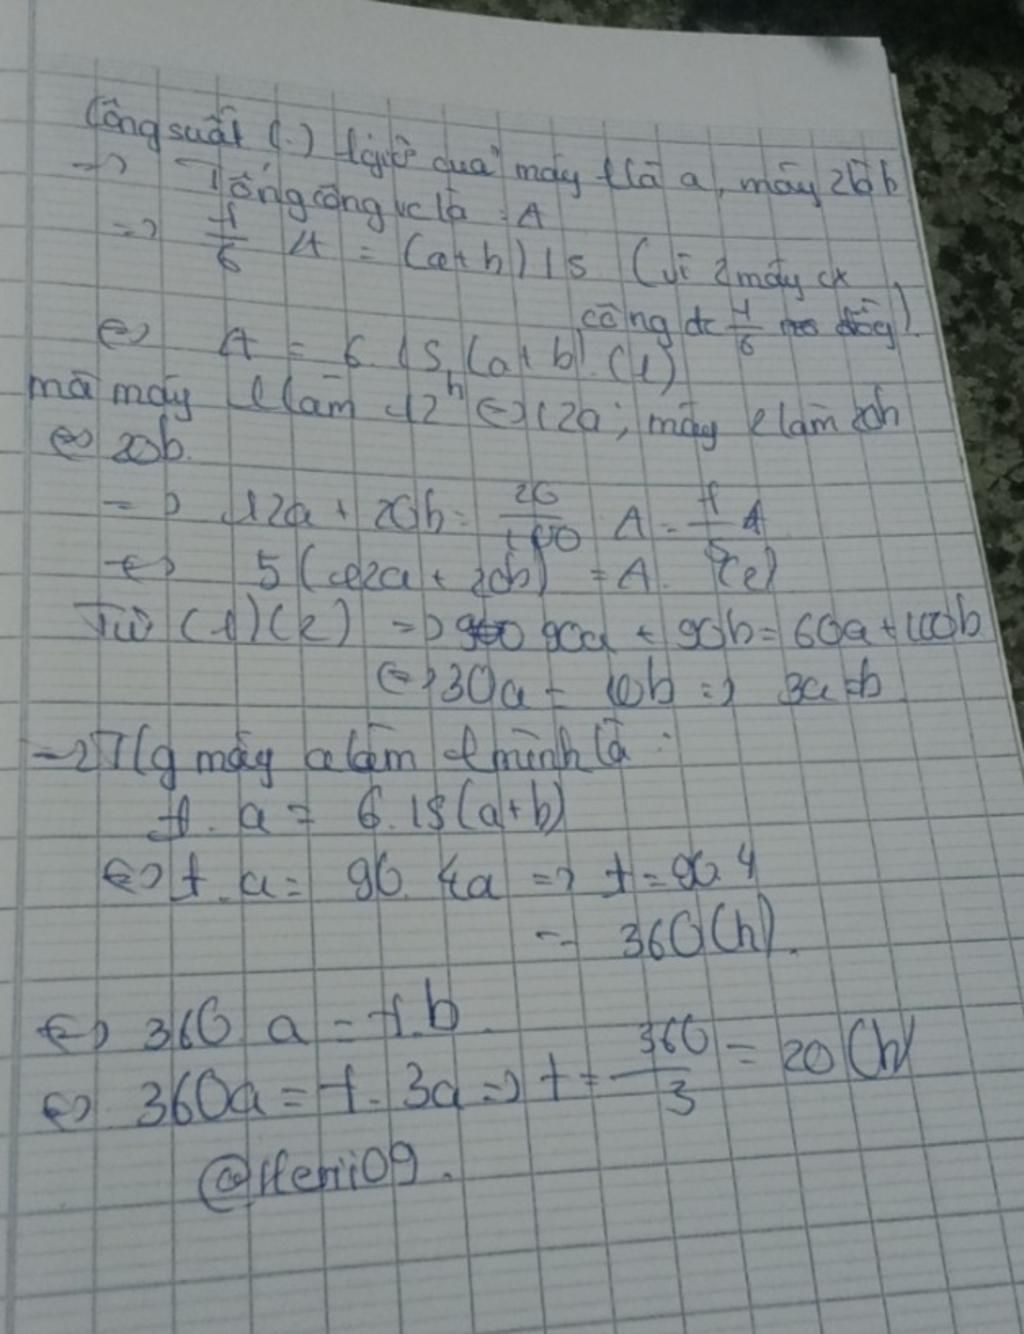 Công suất (.) 1 giờ của máy 1 là a, máy 2 là b
=> Tổng công vc là : A
=> 1/6 A = (a+b) 15 (vì 2 máy cx
công đc 1/6 đồg)
<=> A = 6.15.(a+b).(1)
mà máy 1 làm 12h <=> 12a; máy 2 làm 20h
<=> 20b.
=> 12a + 20b = 20/100 A = 1/5 A
<=> 5(12a + 20b) = A. (2)
Từ (1)(2) => 90a + 90b = 60a + 100b
<=> 30a = 10b => 3a = b
=> T/g máy a làm 1 mình là :
t. a = 6.15(a+b)
<=> t. a = 90. 4a => t = 90.4
= 360(h).
<=> 360 a = t.b
<=> 360a = t. 3a => t = 360/3 = 20(h)
@Henii09.